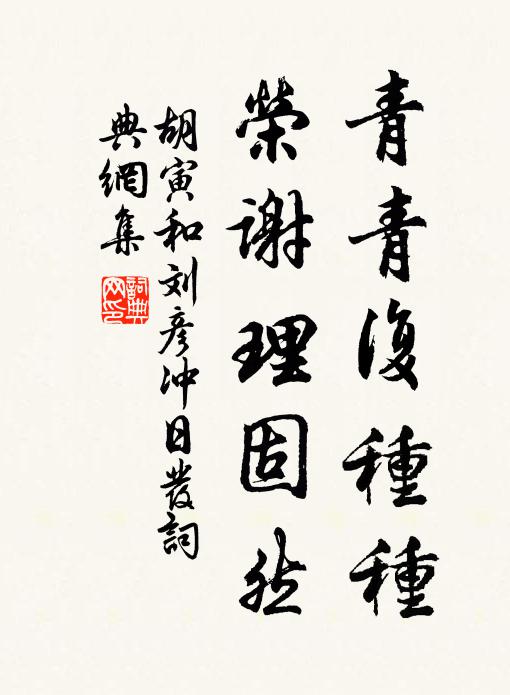 青青復種種
榮謝理固然
胡寅和刘彦冲日發詞
典網集
詞典
网印